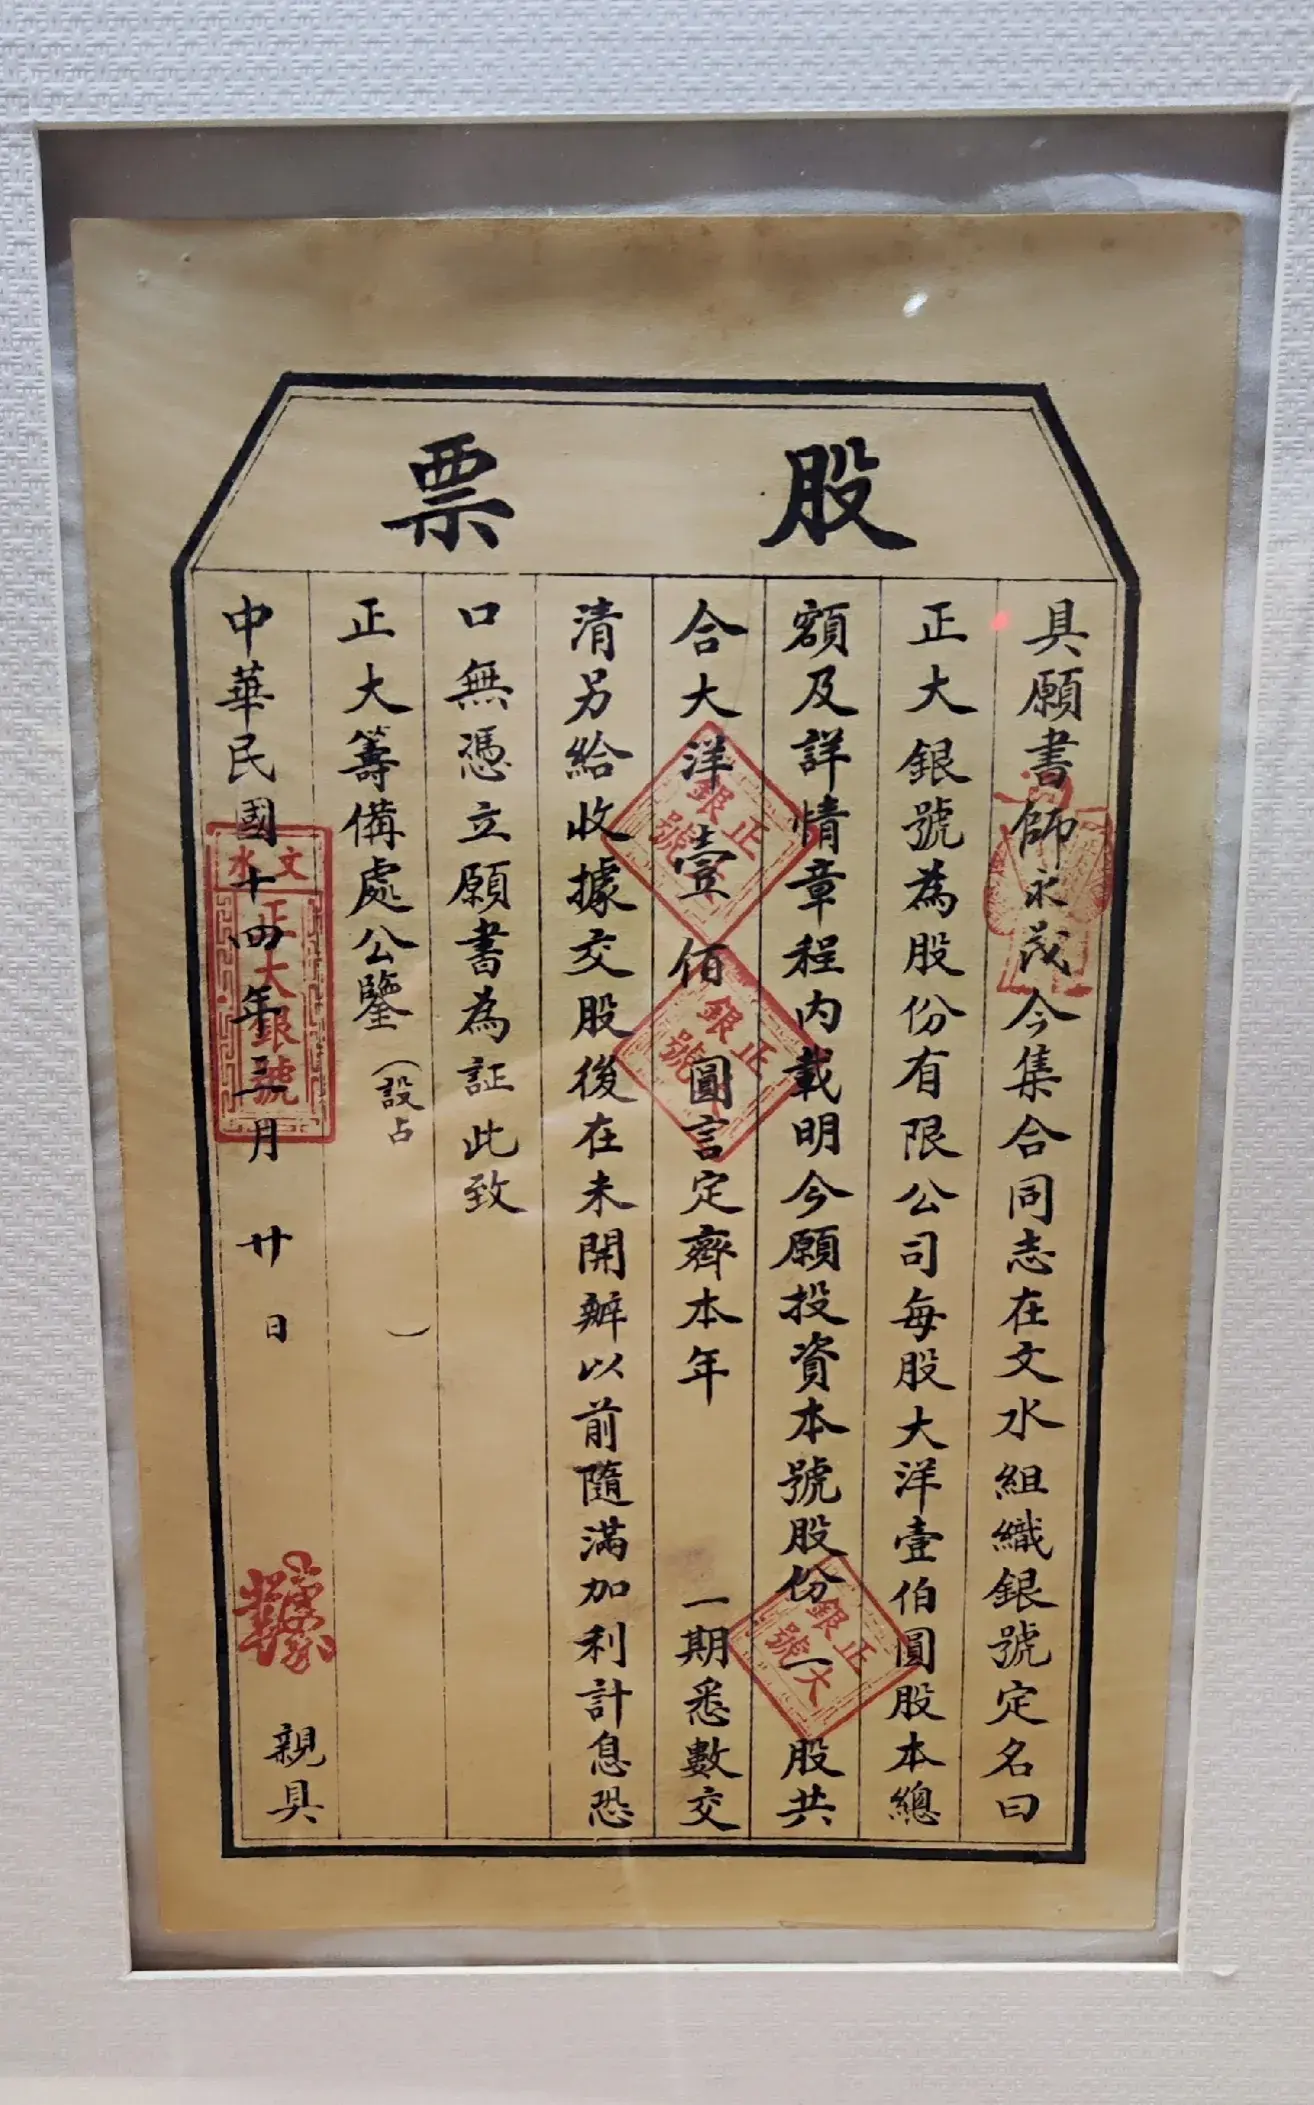 股票
具願書師永茂今集合同志在文水組織銀號定名曰
正大銀號為股份有限公司每股大洋壹伯圓股本總
額及詳情章程內載明今願投資本號股份一股共
合大洋壹佰圓言定齊本年 一期悉數交
清另給收據交股後在未開辦以前隨滿加利計息恐
口無憑立願書為証此致
正大籌備處公鑒（設占 ）
中華民國十四年三月廿日 親具
文水
正大銀號
正大銀號
正大銀號
正大銀號